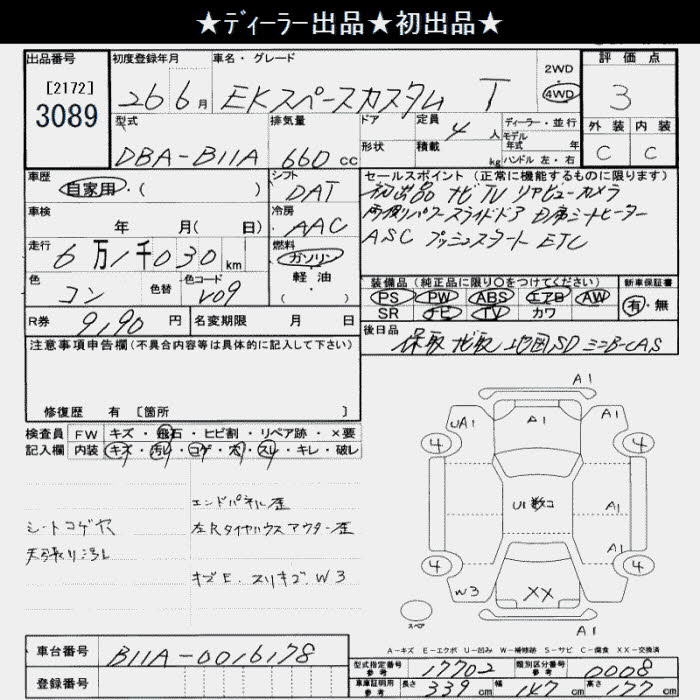 ★ディーラー出品★初出品★
出品番号
[2172]
3089
初度登録年月
26 6月
車名・グレード
EKスペースカスタム T
2WD
4WD
評価点
3
外装 内装
C C
型式
DBA-B11A
排気量
660 cc
ドア
形状
定員
4 人
積載
kg
ディーラー・並行
モデル
年式 年
ハンドル 左・右
車歴
自家用・( )
シフト
DAT
セールスポイント(正常に機能するものに限ります)
初出品 ナビTV リヤビューカメラ
両側パワースライドドア D席シートヒーター
ASC プッシュスタート ETC
車検
年 月( 日)
冷房
AAC
走行
6万1千030 km
燃料
ガソリン
軽油
・( )
色
コン
色替
色コード
V09
装備品(純正品に限り○をつけてください)
PS PW ABS エアB AW
SR ナビ TV カワ
新車保証書
有・無
R券
9,190 円
名変期限 月 日
後日品
保取 ナビ取 地図SD ミニB-CAS
注意事項申告欄(不具合内容等は具体的に記入して下さい)
修復歴 有 [箇所 ]
検査員
記入欄
FW キズ・飛石・ヒビ割・リペア跡・×要
内装 キズ・汚レ・コゲ・穴・スレ・キレ・破レ
シートコゲ穴
天張り汚レ
エンドパネル歪
左Rタイヤハウスアウター歪
キズE、スリキズW3
A1
UA1
A1
A1
4
4
U1数コ
A1
A1
4
4
W3
XX
A1
スペア
A-キズ E-エクボ U-凹み W-補修跡 S-サビ C-腐食 XX-交換済
車台番号
B11A-0016178
登録番号
型式指定番号
参考
17702
類別区分番号
参考
0008
車庫証明用
参考
長さ 339 cm 幅 147 cm 高さ 177 cm